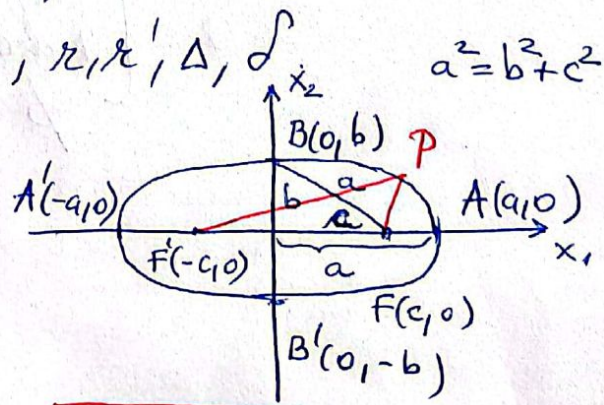 , r, r', Δ, δ
a² = b² + c²
x₂
B(0, b)
P
A'(-a, 0)
a
A(a, 0)
b
c
x₁
F'(-c, 0)
a
F(c, 0)
B'(0, -b)